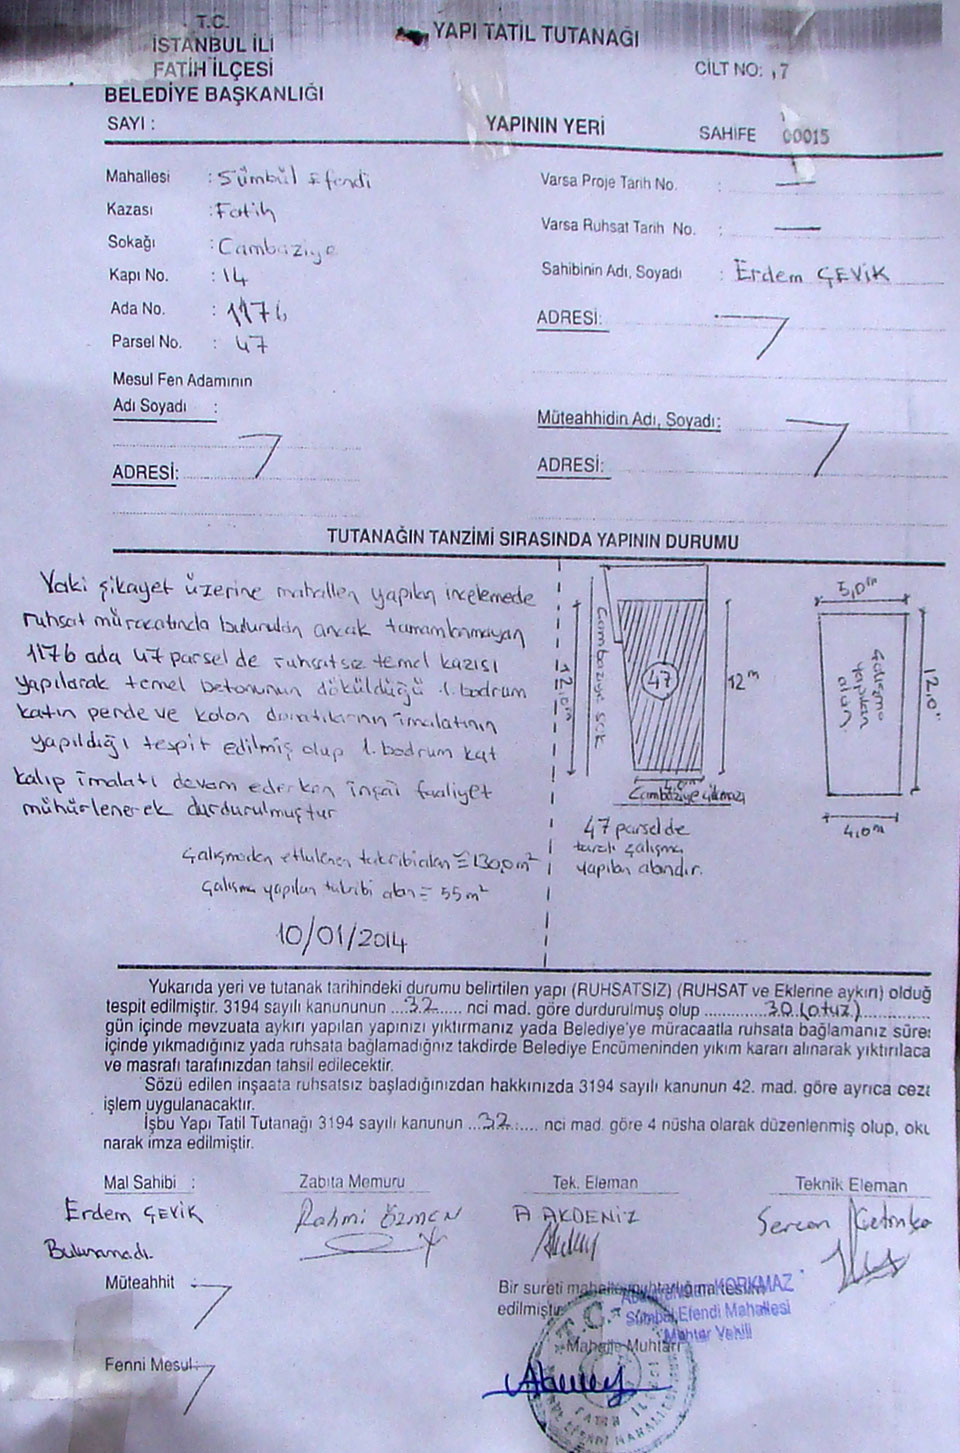 T.C.
İSTANBUL İLİ
FATİH İLÇESİ
BELEDİYE BAŞKANLIĞI
SAYI :
YAPI TATİL TUTANAĞI
CİLT NO: 7
YAPININ YERİ
SAHİFE 00015
Mahallesi : Sümbül Efendi
Kazası : Fatih
Sokağı : Cambaziye
Kapı No. : 14
Ada No. : 1176
Parsel No. : 47
Mesul Fen Adamının
Adı Soyadı :
ADRESİ:
Varsa Proje Tarih No. : —
Varsa Ruhsat Tarih No. : —
Sahibinin Adı, Soyadı : Erdem ÇEVİK
ADRESİ:
Müteahhidin Adı, Soyadı:
ADRESİ:
TUTANAĞIN TANZİMİ SIRASINDA YAPININ DURUMU
Vaki şikayet üzerine mahallen yapılan incelemede
ruhsat müracatında bulunulan ancak tamamlanmayan
1176 ada 47 parsel de ruhsatsız temel kazısı
yapılarak temel betonunun döküldüğü 1. bodrum
katın perde ve kolon donatılarının imalatının
yapıldığı tespit edilmiş olup 1. bodrum kat
kalıp imalatı devam ederken inşai faaliyet
mühürlenerek durdurulmuştur
Çalışmadan etkilenen takribi alan = 130,0 m²
Çalışma yapılan takribi alan = 55 m²
10/01/2014
Cambaziye sok
12,0m
47
12 m
Cambaziye çıkmazı
47 parsel de
taralı çalışma
yapılan alandır.
5,0m
Çalışma
yapılan
alan
12,0
4,0m
Yukarıda yeri ve tutanak tarihindeki durumu belirtilen yapı (RUHSATSIZ) (RUHSAT ve Eklerine aykırı) olduğ
tespit edilmiştir. 3194 sayılı kanununun ...32...... nci mad. göre durdurulmuş olup ..............30 (otuz)............
gün içinde mevzuata aykırı yapılan yapınızı yıktırmanız yada Belediye'ye müracaatla ruhsata bağlamanız süre
içinde yıkmadığınız yada ruhsata bağlamadığnız takdirde Belediye Encümeninden yıkım kararı alınarak yıktırılaca
ve masrafı tarafınızdan tahsil edilecektir.
Sözü edilen inşaata ruhsatsız başladığınızdan hakkınızda 3194 sayılı kanunun 42. mad. göre ayrıca ceza
işlem uygulanacaktır.
İşbu Yapı Tatil Tutanağı 3194 sayılı kanunun ...32...... nci mad. göre 4 nüsha olarak düzenlenmiş olup, oku
narak imza edilmiştir.
Mal Sahibi :
Erdem ÇEVİK
Bulunamadı.
Zabıta Memuru
Rahmi ÖZMEN
Tek. Eleman
A AKDENİZ
Teknik Eleman
Sercan
Müteahhit :
Bir sureti mahalle muhtarlığına teslim
edilmiştir
KORKMAZ
Sümbül Efendi Mahallesi
Muhtar Vekili
Mahalle Muhtarı
T.C.
Fenni Mesul: